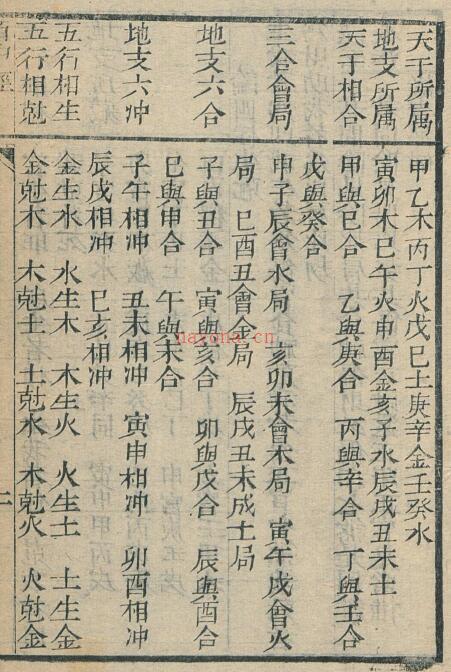 天干所属 甲乙木丙丁火戊己土庚辛金壬癸水
地支所属 寅卯木巳午火申酉金亥子水辰戌丑未土
天干相合 甲與己合 乙與庚合 丙與辛合 丁與壬合
戊與癸合
三合會局 申子辰會水局 亥卯未會木局 寅午戌會火
局 巳酉丑會金局 辰戌丑未成土局
地支六合 子與丑合 寅與亥合 卯與戌合 辰與酉合
巳與申合 午與未合
地支六冲 子午相冲 丑未相冲 寅申相冲 卯酉相冲
辰戌相冲 巳亥相冲
五行相生 金生水 水生木 木生火 火生土 土生金
五行相尅 金尅木 木尅土 土尅水 水尅火 火尅金
二
nayona.cn